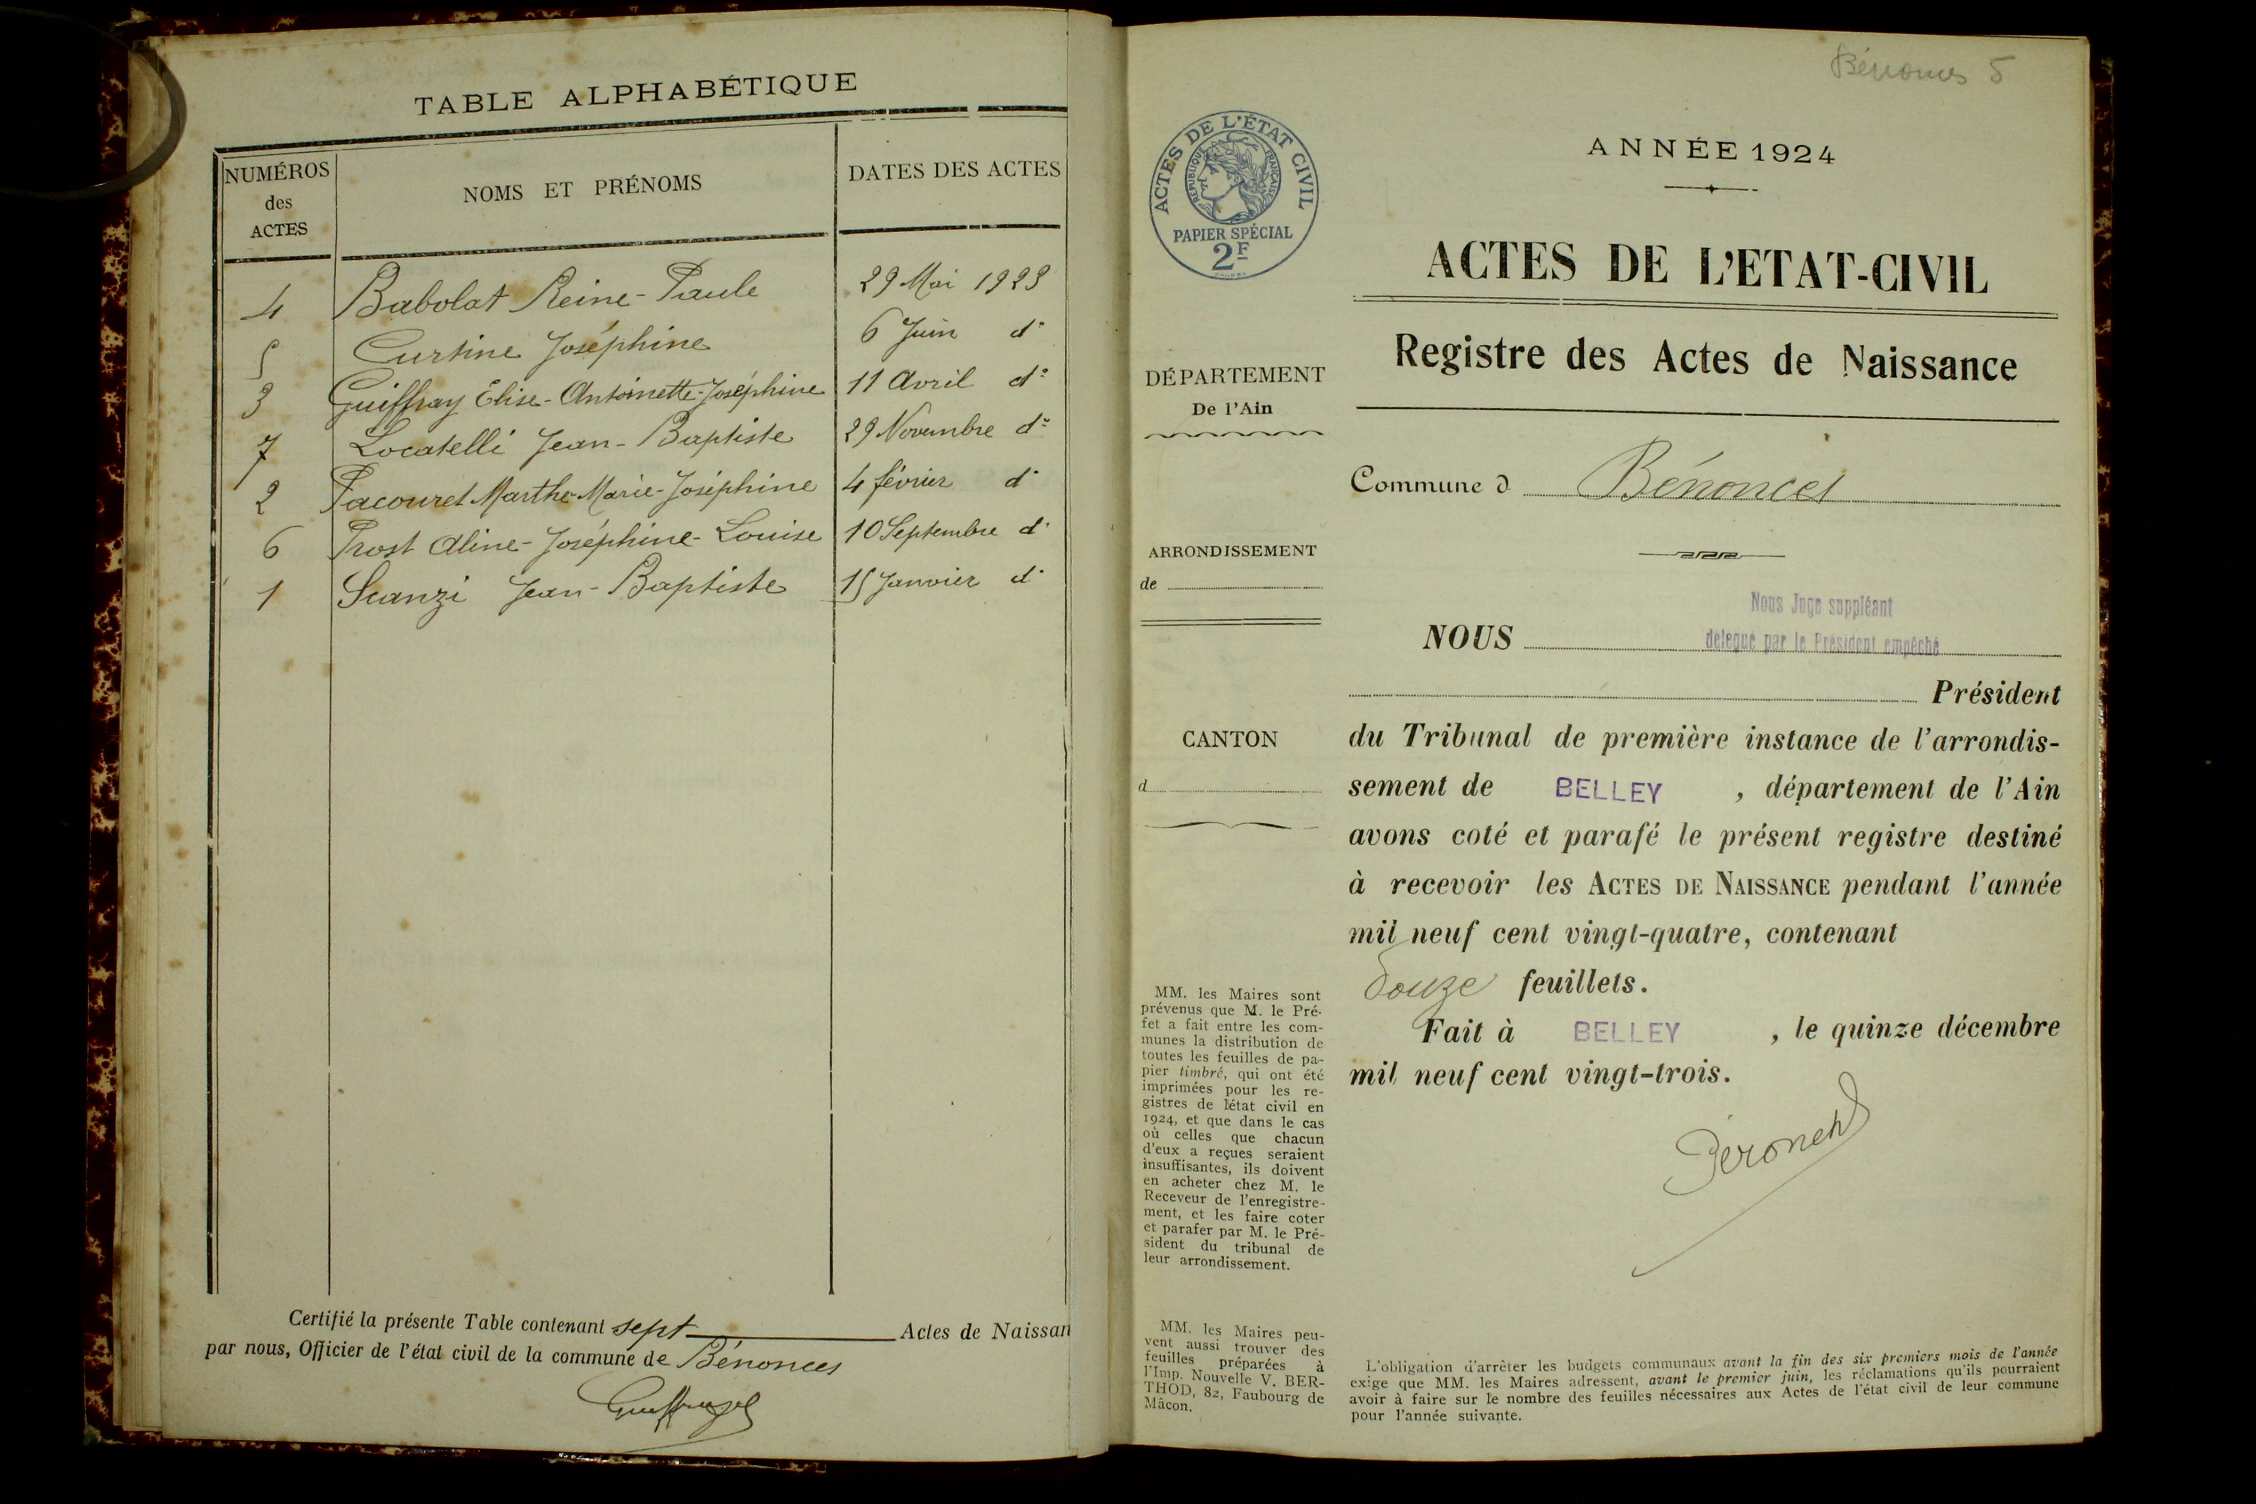 TABLE ALPHABÉTIQUE
NUMÉROS des ACTES
NOMS ET PRÉNOMS
DATES DES ACTES
4 Babolat Reine-Paule 29 Mai 1923
5 Curtine Joséphine 6 Juin d°
3 Guiffray Élise-Antoinette-Joséphine 11 Avril d°
7 Locatelli Jean-Baptiste 29 Novembre d°
2 Pacouret Marthe-Marie-Joséphine 4 février d°
6 Prost Aline-Joséphine-Louise 10 Septembre d°
1 Scanzi Jean-Baptiste 15 Janvier d°
Certifié la présente Table contenant sept Actes de Naissan
par nous, Officier de l'état civil de la commune de Bénonces
Bénonces 5
ACTES DE L'ÉTAT CIVIL
RÉPUBLIQUE FRANÇAISE
PAPIER SPÉCIAL
2F
ANNÉE 1924
ACTES DE L'ETAT-CIVIL
Registre des Actes de Naissance
DÉPARTEMENT
De l'Ain
Commune d Bénonces
ARRONDISSEMENT
de
Nous Juge suppléant
délégué par le Président empêché
NOUS
Président
CANTON
d
du Tribunal de première instance de l'arrondis-
sement de BELLEY, département de l'Ain
avons coté et parafé le présent registre destiné
à recevoir les ACTES DE NAISSANCE pendant l'année
mil neuf cent vingt-quatre, contenant
douze feuillets.
Fait à BELLEY, le quinze décembre
mil neuf cent vingt-trois.
MM. les Maires sont
prévenus que M. le Pré-
fet a fait entre les com-
munes la distribution de
toutes les feuilles de pa-
pier timbré, qui ont été
imprimées pour les re-
gistres de l'état civil en
1924, et que dans le cas
où celles que chacun
d'eux a reçues seraient
insuffisantes, ils doivent
en acheter chez M. le
Receveur de l'enregistre-
ment, et les faire coter
et parafer par M. le Pré-
sident du tribunal de
leur arrondissement.
MM. les Maires peu-
vent aussi trouver des
feuilles préparées à
l'Imp. Nouvelle V. BER-
THOD, 82, Faubourg de
Mâcon.
L'obligation d'arrêter les budgets communaux avant la fin des six premiers mois de l'année
exige que MM. les Maires adressent, avant le premier juin, les réclamations qu'ils pourraient
avoir à faire sur le nombre des feuilles nécessaires aux Actes de l'état civil de leur commune
pour l'année suivante.